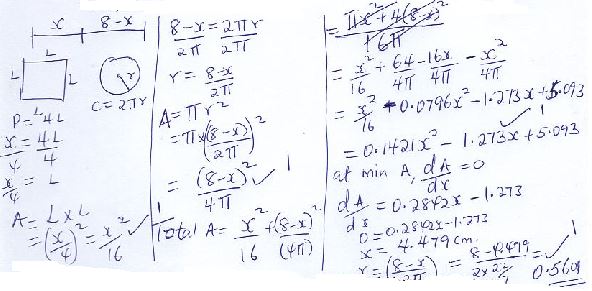 x 8-x
L
L L
L r
C = 2πr
P = 4L
x/4 = 4L/4
x/4 = L
A = L x L
= (x/4)² = x²/16 ✓ 1
8-x/2π = 2πr/2π
r = 8-x/2π
A = πr²
= π x (8-x/2π)²
= (8-x)²/4π ✓ 1
Total A = x²/16 + (8-x)²/(4π)
= πx² + 4(8-x)²/16π
= x²/16 + 64/4π - 16x/4π - x²/4π
= x²/16 + 0.0796x² - 1.273x + 5.093
= 0.1421x² - 1.273x + 5.093 ✓ 1
at min A, dA/dx = 0
dA/dx = 0.2842x - 1.273
0 = 0.2842x - 1.273
x = 4.479 cm
r = (8-x/2π) = 8-4.479/2x = ✓ 1
0.5601